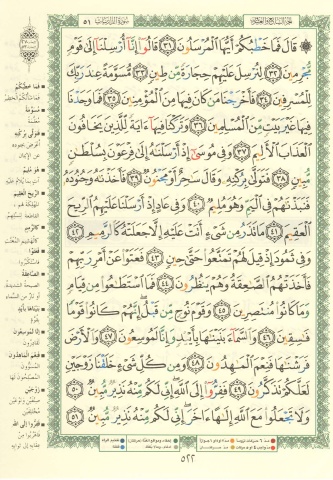 الجزء السابع والعشرون
سورة الذاريات ٥١
۞ قَالَ فَمَا خَطْبُكُمْ أَيُّهَا ٱلْمُرْسَلُونَ ٣١ قَالُوٓا۟ إِنَّآ أُرْسِلْنَآ إِلَىٰ قَوْمٍ
مُّجْرِمِينَ ٣٢ لِنُرْسِلَ عَلَيْهِمْ حِجَارَةً مِّن طِينٍ ٣٣ مُّسَوَّمَةً عِندَ رَبِّكَ
لِلْمُسْرِفِينَ ٣٤ فَأَخْرَجْنَا مَن كَانَ فِيهَا مِنَ ٱلْمُؤْمِنِينَ ٣٥ فَمَا وَجَدْنَا
فِيهَا غَيْرَ بَيْتٍ مِّنَ ٱلْمُسْلِمِينَ ٣٦ وَتَرَكْنَا فِيهَآ ءَايَةً لِّلَّذِينَ يَخَافُونَ
ٱلْعَذَابَ ٱلْأَلِيمَ ٣٧ وَفِى مُوسَىٰٓ إِذْ أَرْسَلْنَٰهُ إِلَىٰ فِرْعَوْنَ بِسُلْطَٰنٍ
مُّبِينٍ ٣٨ فَتَوَلَّىٰ بِرُكْنِهِۦ وَقَالَ سَٰحِرٌ أَوْ مَجْنُونٌ ٣٩ فَأَخَذْنَٰهُ وَجُنُودَهُۥ
فَنَبَذْنَٰهُمْ فِى ٱلْيَمِّ وَهُوَ مُلِيمٌ ٤٠ وَفِى عَادٍ إِذْ أَرْسَلْنَا عَلَيْهِمُ ٱلرِّيحَ
ٱلْعَقِيمَ ٤١ مَا تَذَرُ مِن شَىْءٍ أَتَتْ عَلَيْهِ إِلَّا جَعَلَتْهُ كَٱلرَّمِيمِ ٤٢
وَفِى ثَمُودَ إِذْ قِيلَ لَهُمْ تَمَتَّعُوا۟ حَتَّىٰ حِينٍ ٤٣ فَعَتَوْا۟ عَنْ أَمْرِ رَبِّهِمْ
فَأَخَذَتْهُمُ ٱلصَّٰعِقَةُ وَهُمْ يَنظُرُونَ ٤٤ فَمَا ٱسْتَطَٰعُوا۟ مِن قِيَامٍ
وَمَا كَانُوا۟ مُنتَصِرِينَ ٤٥ وَقَوْمَ نُوحٍ مِّن قَبْلُ إِنَّهُمْ كَانُوا۟ قَوْمًا
فَٰسِقِينَ ٤٦ وَٱلسَّمَآءَ بَنَيْنَٰهَا بِأَيْي۟دٍ وَإِنَّا لَمُوسِعُونَ ٤٧ وَٱلْأَرْضَ
فَرَشْنَٰهَا فَنِعْمَ ٱلْمَٰهِدُونَ ٤٨ وَمِن كُلِّ شَىْءٍ خَلَقْنَا زَوْجَيْنِ
لَعَلَّكُمْ تَذَكَّرُونَ ٤٩ فَفِرُّوٓا۟ إِلَى ٱللَّهِ إِنِّى لَكُم مِّنْهُ نَذِيرٌ مُّبِينٌ ٥٠
وَلَا تَجْعَلُوا۟ مَعَ ٱللَّهِ إِلَٰهًا ءَاخَرَ إِنِّى لَكُم مِّنْهُ نَذِيرٌ مُّبِينٌ ٥١
٥٢٢
فما خطبكم
مسومة
فتولى بركنه
هو مليم
الريح العقيم
كالرميم
فعتوا
الصاعقة
بنيناها بأيد
إنا لموسعون
فنعم الماهدون
زوجين
ففروا إلى الله